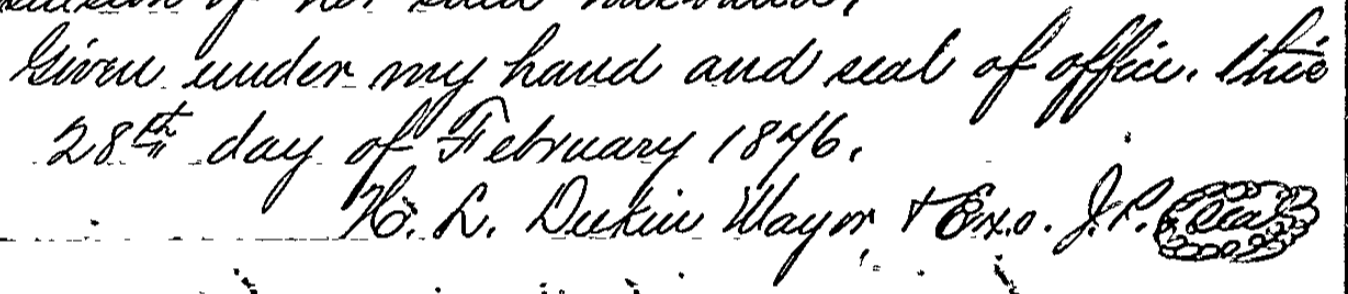 of her said husband,
Given under my hand and seal of office. this
28th day of February 1876.
H. L. Deekin Mayor & Exo. J.P. Seal